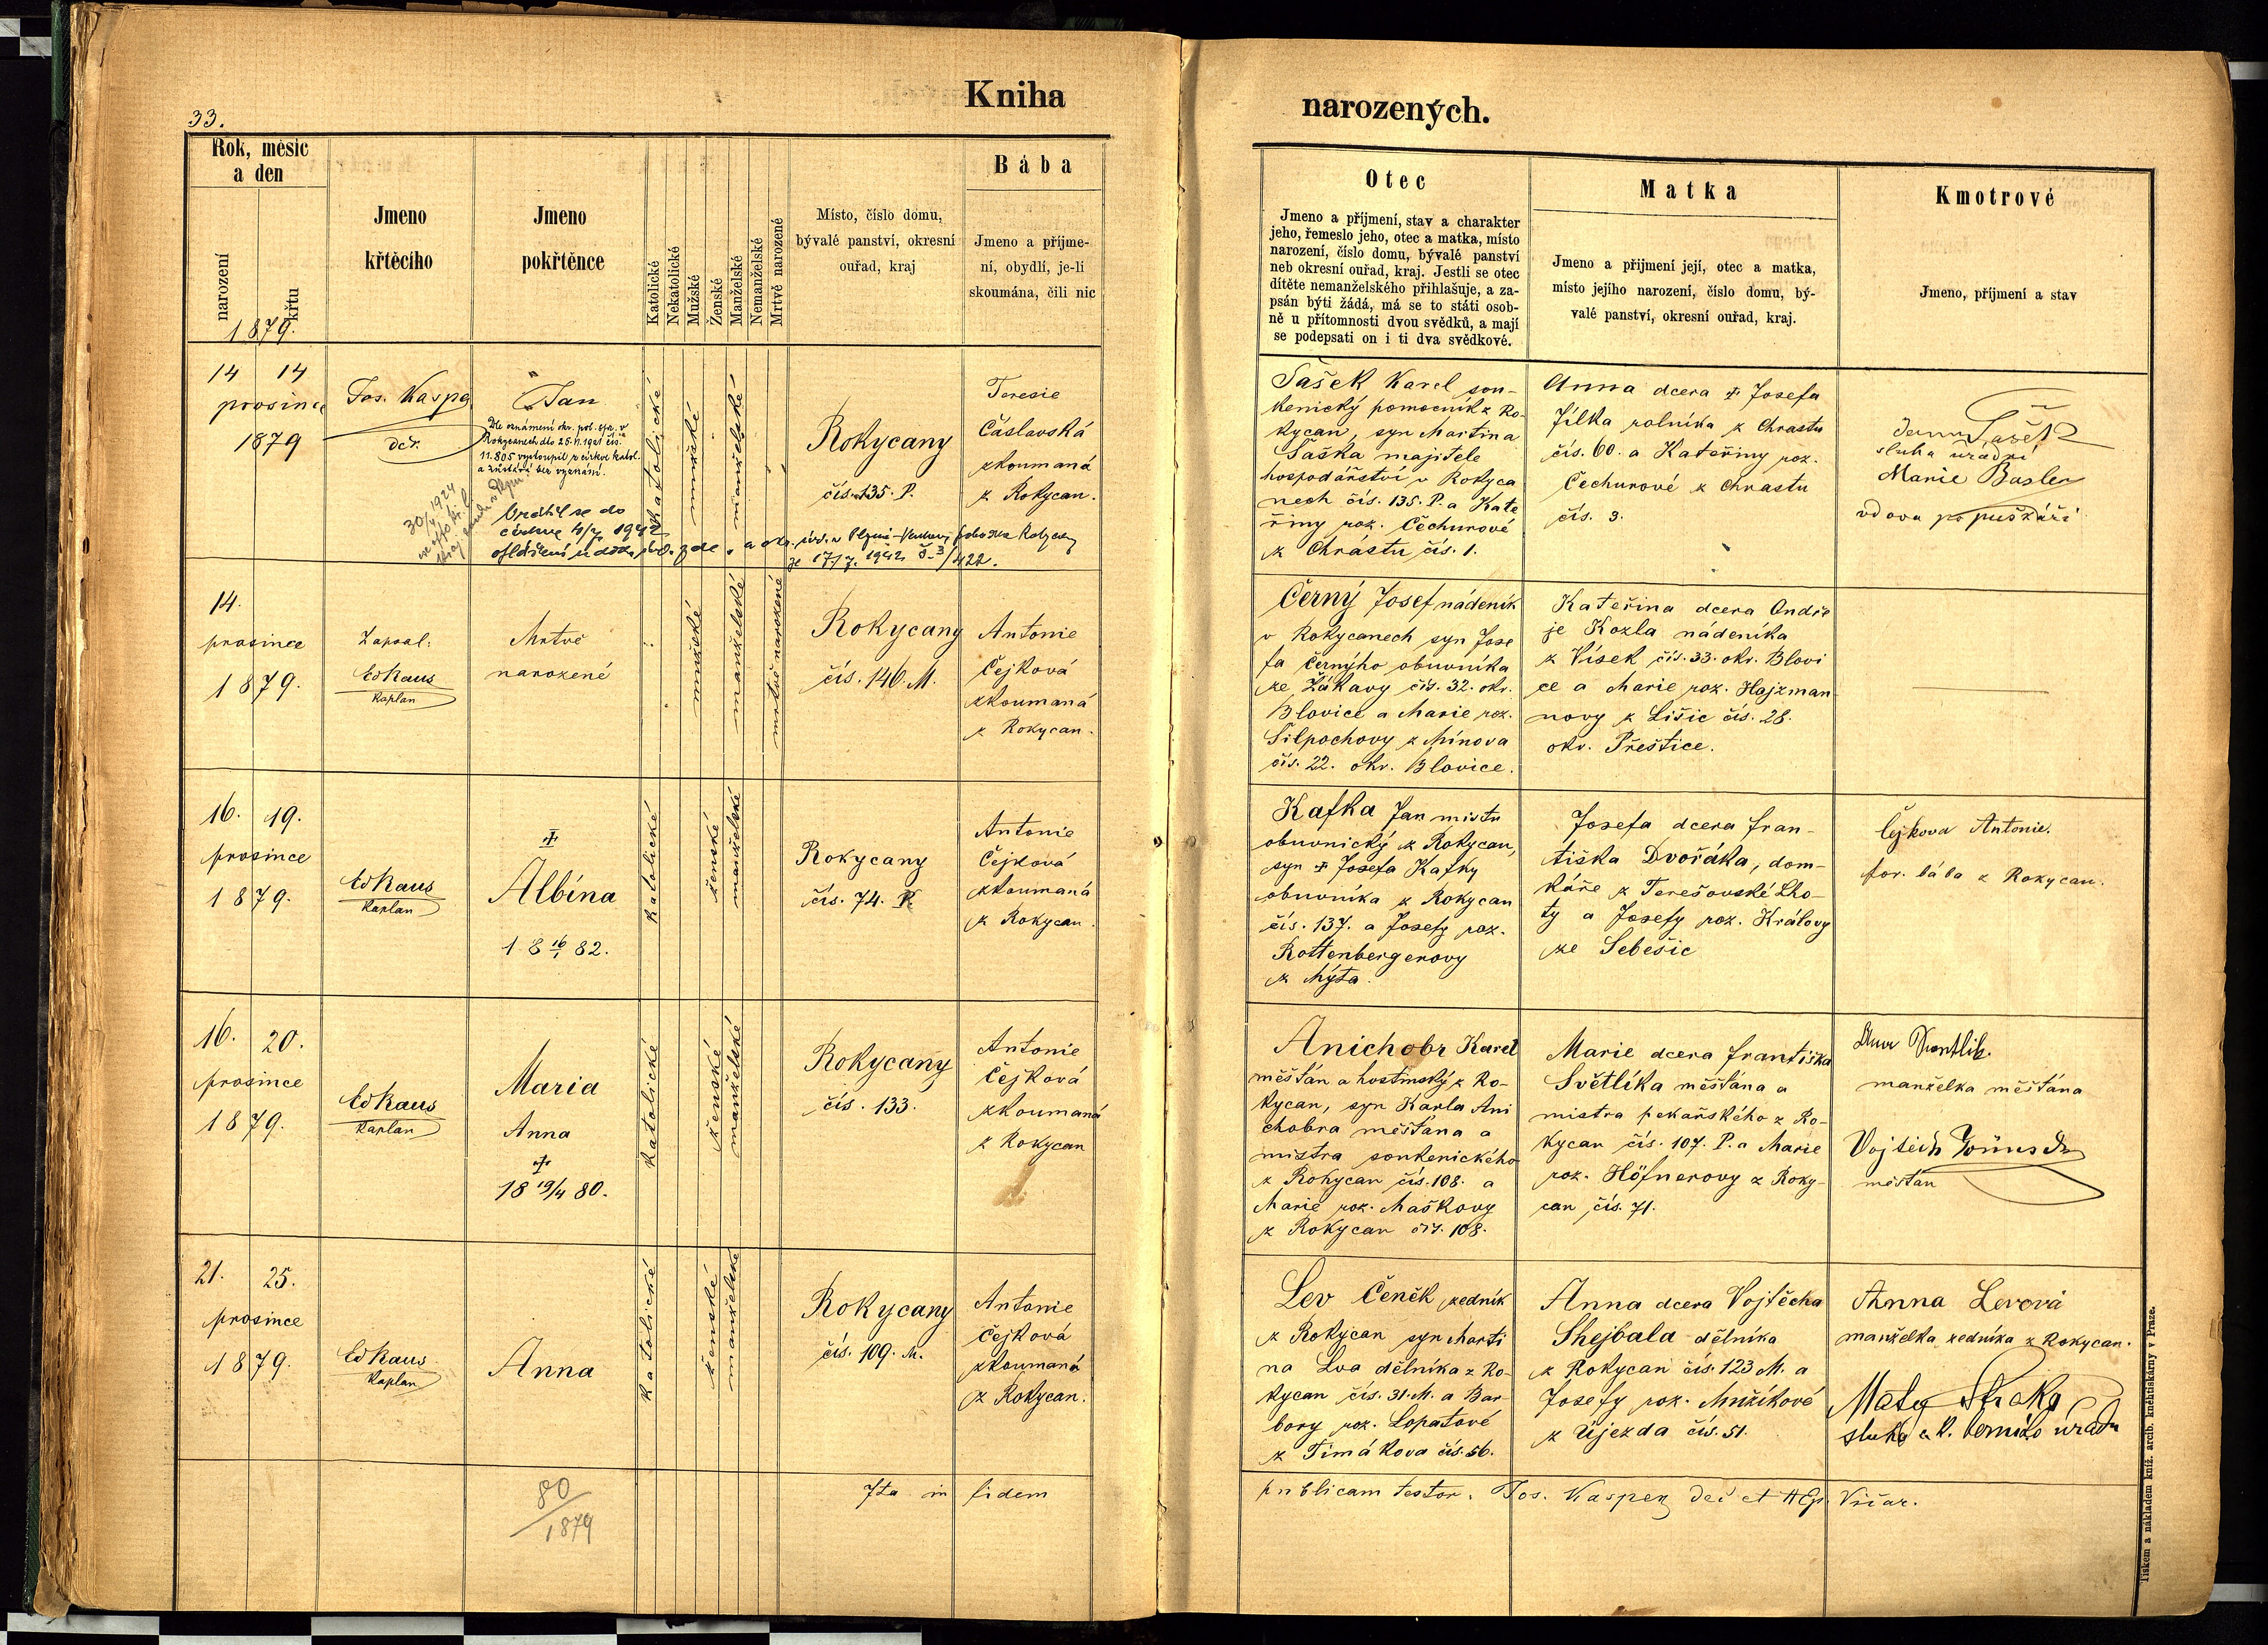 Kniha
narozených.
33.
Rok, měsíc
a den
narození
křtu
1879.
Jmeno
křtěcího
Jmeno
pokřtěnce
Katolické
Nekatolické
Mužské
Ženské
Manželské
Nemanželské
Mrtvě narozené
Místo, číslo domu,
bývalé panství, okresní
ouřad, kraj
Bába
Jmeno a příjme-
ní, obydlí, je-li
skoumána, čili nic
Otec
Jmeno a příjmení, stav a charakter
jeho, řemeslo jeho, otec a matka, místo
narození, číslo domu, bývalé panství
neb okresní ouřad, kraj. Jestli se otec
dítěte nemanželského přihlašuje, a za-
psán býti žádá, má se to státi osob-
ně u přítomnosti dvou svědků, a mají
se podepsati on i ti dva svědkové.
Matka
Jmeno a příjmení její, otec a matka,
místo jejího narození, číslo domu, bý-
valé panství, okresní ouřad, kraj.
Kmotrové
Jmeno, příjmení a stav
14 14
prosince
1879
Jos. Kasper
děk.
Jan
Dle oznámení okr. pol. spr. v
Rokycanech dto 25.11.1921 čís.
11.805 vystoupil z církve katol.
a zůstává bez vyznání.
30/4 1924
Vrátil se do
církve 4/7 1942
katolické
mužské
manželské
Rokycany
čís. 135. P.
Teresie
Čáslavská
zkoumaná
z Rokycan.
17/7. 1942 č. 3/422.
Šašek Karel sou-
kenický pomocník z Ro-
kycan, syn Martina
Šaška majitele
hospodářství v Rokyca
nech čís. 135. P. a Kate
řiny roz. Čechurové
z Chrástu čís. 1.
Anna dcera ✝ Josefa
Jílka rolníka z Chrastu
čís. 60. a Kateřiny roz.
Čechurové z Chrastu
čís. 3.
Šašek
sluha úřadní
Marie Basler
vdova po puškáři
14.
prosince
1879.
Zapsal:
Ed Kaus
Kaplan
Mrtvě
narozené
mužské
manželské
mrtvě narozené
Rokycany
čís. 146. M.
Antonie
Čejková
zkoumaná
z Rokycan.
Černý Josef nádeník
v Rokycanech syn Jose
fa Černýho obuvníka
ze Žákavy čís. 32. okr.
Blovice a Marie roz.
Silpochovy z Mínova
čís. 22. okr. Blovice.
Kateřina dcera Ondře
je Kozla nádeníka
z Vísek čís. 33. okr. Blovi
ce a Marie roz. Hajzman
novy z Lišic čís. 28.
okr. Přeštice.
16. 19.
prosince
1879.
Ed Kaus
Kaplan
✝
Albína
18 16/1 82.
katolické
ženské
manželské
Rokycany
čís. 74. P.
Antonie
Čejková
zkoumaná
z Rokycan.
Kafka Jan mistr
obuvnický z Rokycan,
syn ✝ Josefa Kafky
obuvníka z Rokycan
čís. 137. a Josefy roz.
Rottenbergerovy
z Mýta.
Josefa dcera Fran-
tiška Dvořáka, dom-
káře z Terešovské Lho-
ty a Josefy roz. Královy
ze Sebešic
Čejkova Antonie.
por. bába z Rokycan.
16. 20.
prosince
1879.
Ed Kaus
Kaplan
Maria
Anna
✝
18 19/4 80.
katolické
ženské
manželské
Rokycany
čís. 133.
Antonie
Čejková
zkoumaná
z Rokycan
Anichobr Karel
měšťán a hostinský z Ro-
kycan, syn Karla Ani
chobra měšťana a
mistra soukenického
z Rokycan čís. 108. a
Marie roz. Maškovy
z Rokycan čís. 108.
Marie dcera Františka
Světlíka měšťána a
mistra pekařského z Ro-
kycan čís. 107. P. a Marie
roz. Höfnerovy z Roky-
can čís. 71.
manželka měšťána
Vojtěch
měšťan
21. 25.
prosince
1879.
Ed Kaus
Kaplan
Anna
katolické
ženské
manželské
Rokycany
čís. 109. M.
Antonie
Čejková
zkoumaná
z Rokycan.
Lev Čeněk zedník
z Rokycan syn Marti
na Lva dělníka z Ro-
kycan čís. 31. M. a Bar
bory roz. Lopatové
z Timákova čís. 56.
Anna dcera Vojtěcha
Shejbala dělníka
z Rokycan čís. 123 M. a
Josefy roz. Mužíkové
z Újezda čís. 51.
Anna Levová
manželka zedníka z Rokycan.
sluha c. k. berního úřadu
80/1879
Ita in fidem publicam testor. Jos. Kasper děk. et AEp. Vicar.
Tiskem a nákladem kníž. arcib. knihtiskárny v Praze.